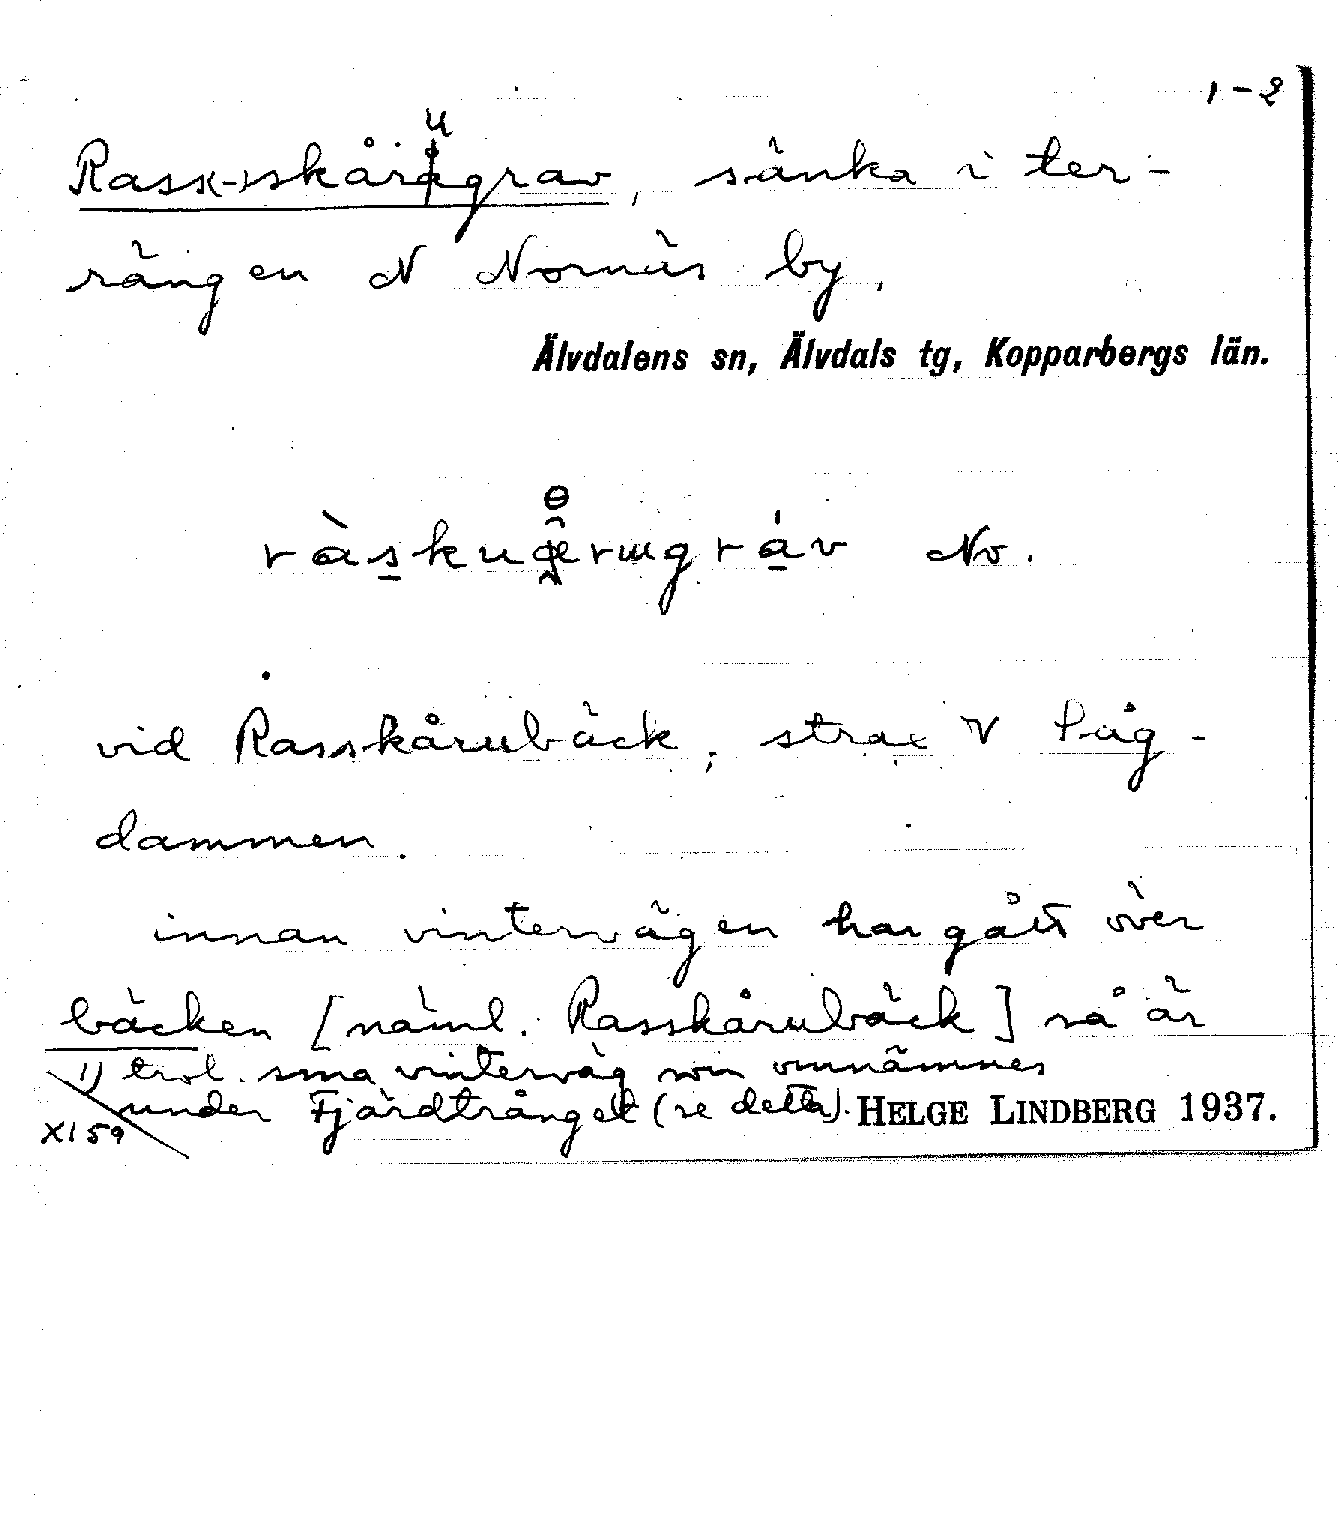 1-2
Rass(-)skårugrav, sänka i ter-
rängen N Nornäs by.
Älvdalens sn, Älvdals tg, Kopparbergs län.
No.
vid Rasskårubäck, strax V Såg-
dammen.
innan vintervägen har gått över
bäcken [näml. Rasskårubäck] så är
1) trol. sma vinterväg som omnämnes
under Fjärdtrånget (se detta).
HELGE LINDBERG 1937.
XI 59